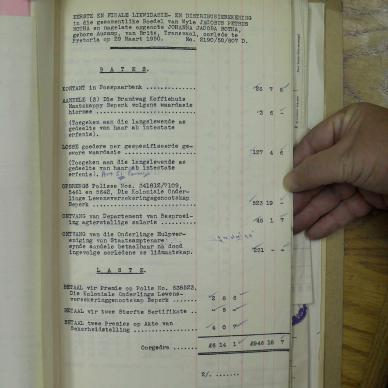 EERSTE EN FINALE LIKWIDASIE- EN DISTRIBUSIEREKENING
in die gesamentlike Boedel van Wyle JACOBUS PETRUS
BOTHA en nagelate eggenote JOHANNA JACOBA BOTHA,
gebore van Brits, Transvaal, oorlede te
Pretoria op 29 Maart 1950. No. 2190/50/607 D.
B A T E S.
KONTANT in Pospaarbank 26 7 6
AANDELE (3) Die Brandwag Koffiehuis
Maatskappy Beperk volgens waardasie
hiermee 3 6 -
(Toegeken aan die langslewende as
gedeelte van haar ab intestate
erfenis).
LOSSE goedere per gespesifiseerde ge-
swore waardasie 127 4 6
(Toegeken aan die langslewende as
gedeelte van haar ab intestate
erfenis).
OPBRENGS Polisse Nos. 341812/7109,
5461 en 8642, Die Koloniale Onder-
linge Lewensversekeringsgenootskap
Beperk 523 19 -
ONTVANG van Departement van Besproei-
ing agterstallige salaris 46 1 7
ONTVANG van die Onderlinge Hulpver-
eniging van Staatsamptenare
synde aandele betaalbaar na dood
ingevolge oorledene se lidmaatskap. 221 - -
L A S T E.
BETAAL vir Premie op Polis No. 538523,
Die Koloniale Onderlinge Lewens-
versekeringsgenootskap Beperk 2 8 6
BETAAL vir twee Sterfte Sertifikate - 5 -
BETAAL twee Premies op Akte van
Sekerheidstelling 4 0 7
Oorgedra £6 14 1 £948 18 7
2/.